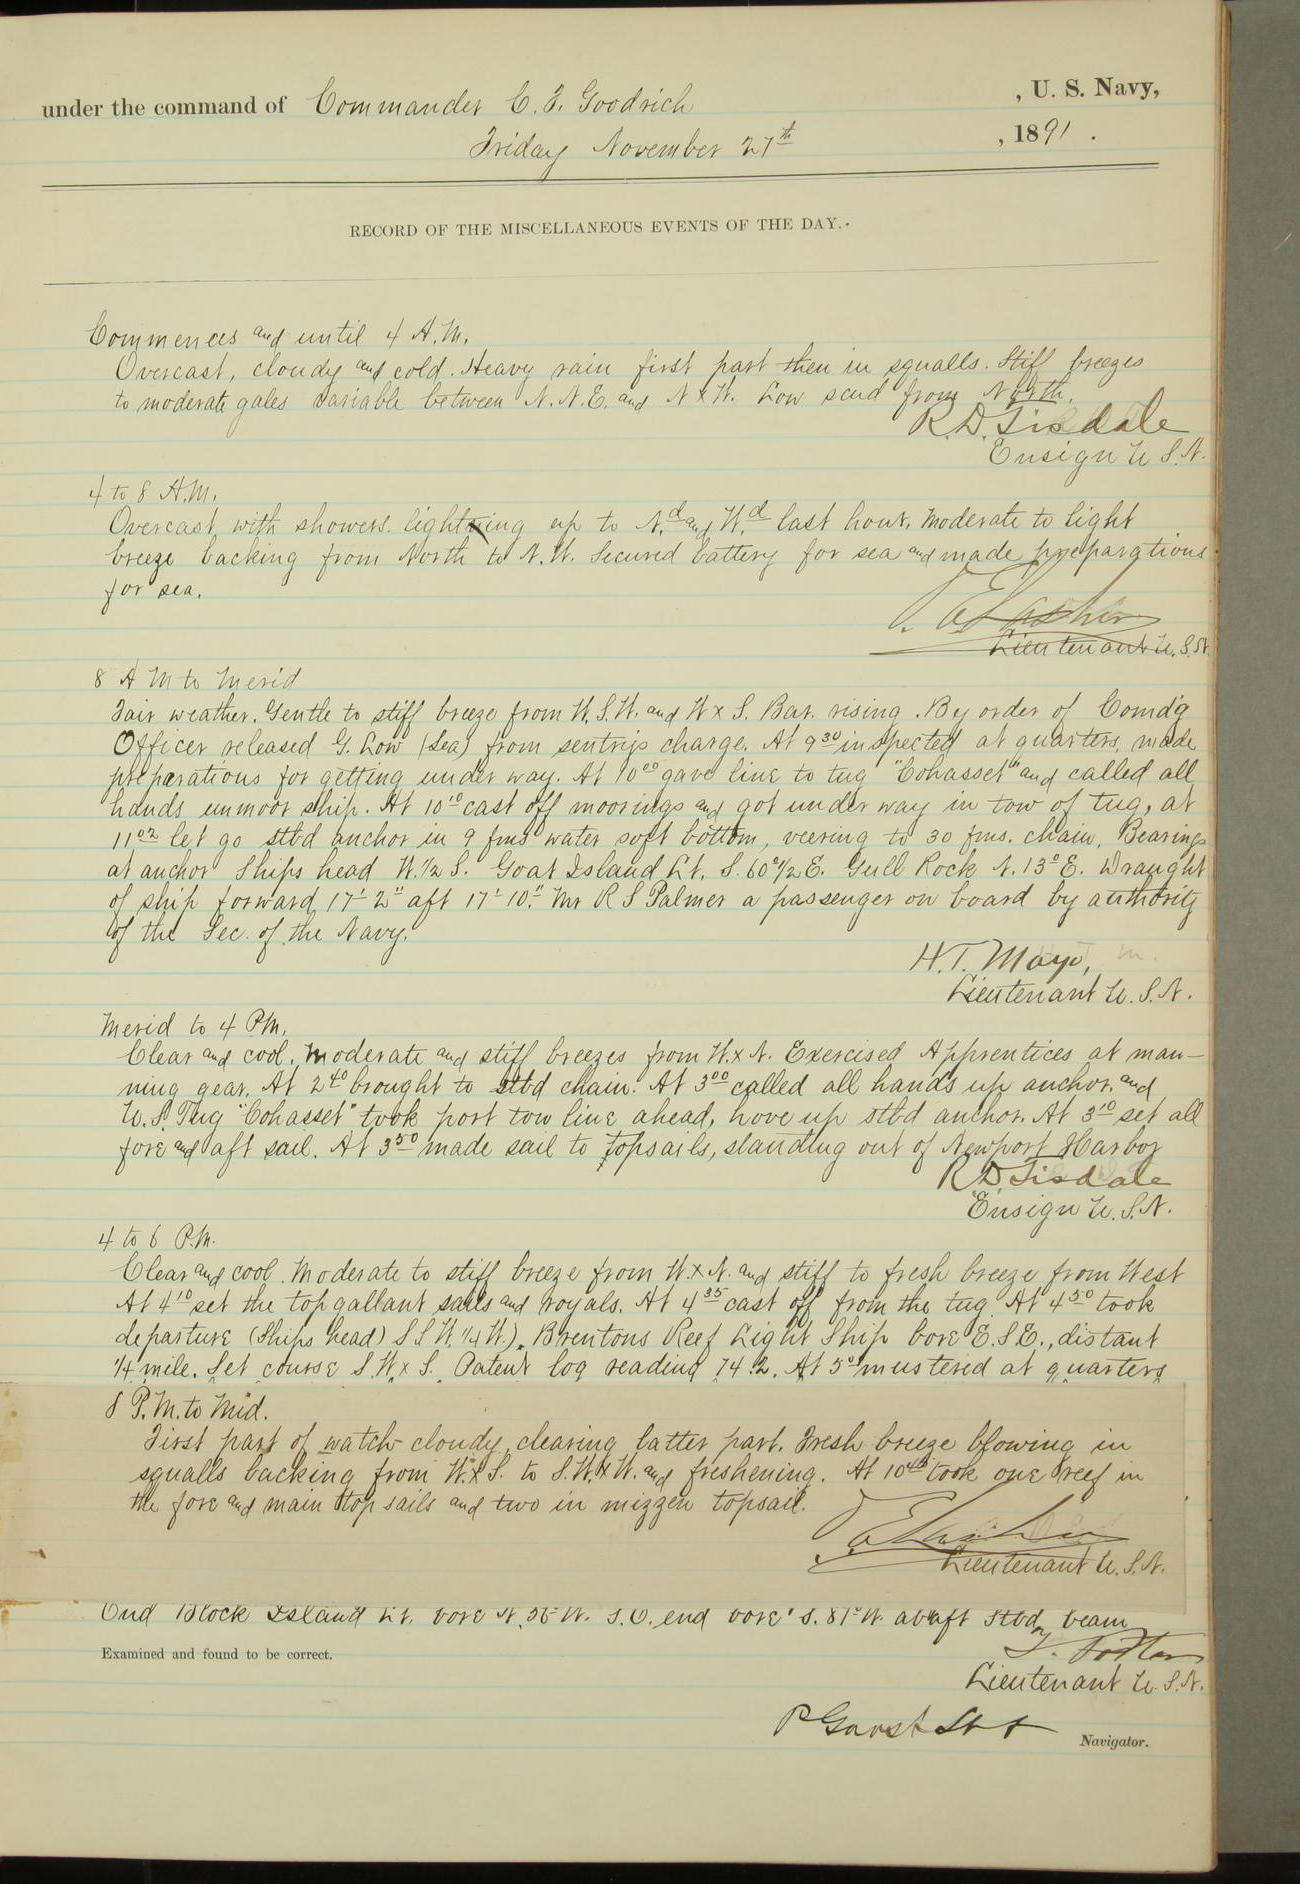 under the command of Commander C. F. Goodrich , U. S. Navy,
Friday November 27th , 1891 .
RECORD OF THE MISCELLANEOUS EVENTS OF THE DAY.
Commences and until 4 A.M.
Overcast, cloudy and cold. Heavy rain first part then in squalls. Stiff breezes
to moderate gales variable between N.N.E. and N x W. Low scud from North.
R. D. Tisdale
Ensign U S.N.
4 to 8 A.M.
Overcast with showers. lightning up to N.d and W.d last hour. Moderate to light
breeze backing from North to N.W. Secured battery for sea and made preparations
for sea.
Lieutenant U.S.N.
8 A M to Merid
Fair weather. Gentle to stiff breeze from W.S.W. and W x S. Bar. rising. By order of Comd'g
Officer released G. Low (Sea) from sentrys charge. At 9 30 inspected at quarters, made
preparations for getting under way. At 10 00 gave line to tug "Cohasset" and called all
hands unmoor ship. At 10 10 cast off moorings and got under way in tow of tug, at
11 02 let go stbd anchor in 9 fms water soft bottom, veering to 30 fms. chain. Bearings
at anchor Ships head W.1/2 S. Goat Island Lt. S. 60° 1/2 E. Gull Rock N. 13° E. Draught
of ship forward 17' 2" aft 17' 10." Mr R S Palmer a passenger on board by authority
of the Sec. of the Navy.
H. T. Mayo,
Lieutenant U. S. N.
Merid to 4 P.M.
Clear and cool. Moderate and stiff breezes from W. x N. Exercised Apprentices at man-
ning gear. At 2 40 brought to stbd chain. At 3 00 called all hands up anchor, and
U. S. Tug "Cohasset" took port tow line ahead, hove up stbd anchor. At 3 10 set all
fore and aft sail. At 3 50 made sail to topsails, standing out of Newport Harbor
R. D. Tisdale
Ensign U. S. N.
4 to 6 P.M.
Clear and cool. Moderate to stiff breeze from W. x N. and stiff to fresh breeze from West
At 4 10 set the topgallant sails and royals. At 4 35 cast off from the tug. At 4 50 took
departure (Ships head) S S W. 1/4 W.). Brentons Reef Light Ship bore E. S E., distant
1/4 mile. Set course S. W. x S. Patent log reading 74.2. At 5 mustered at quarters
8 P.M. to Mid.
First part of watch cloudy, clearing latter part. Fresh breeze blowing in
squalls backing from W. x S. to S. W. x W. and freshening. At 10 took one reef in
the fore and main topsails and two in mizzen topsail.
Lieutenant U. S. N.
End Block Island Lt. bore N. W. S. O. end bore S. 81° W. abaft Stbd beam
Examined and found to be correct.
Lieutenant U. S. N.
Navigator.